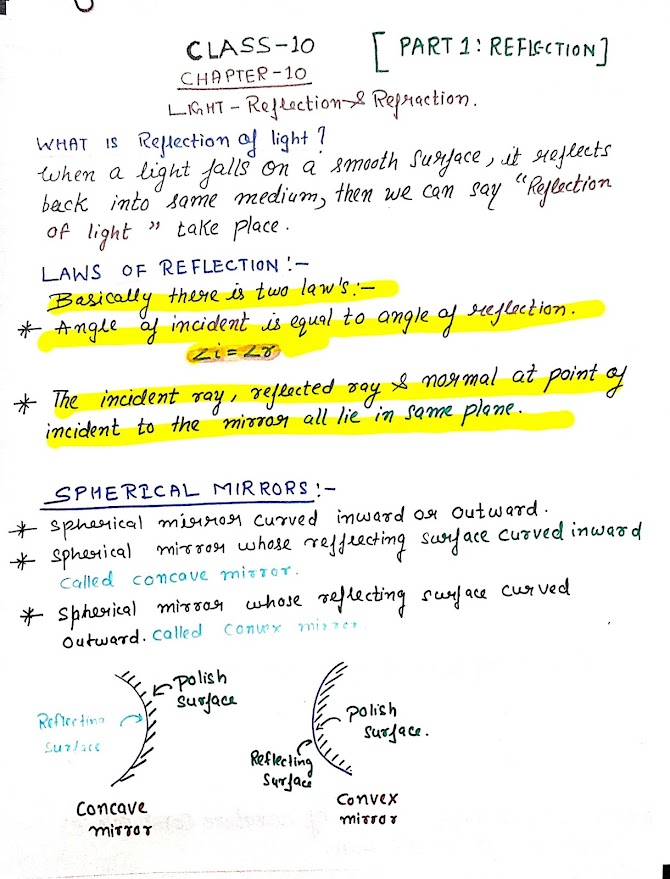 CLASS-10
[PART 1: REFLECTION]
CHAPTER-10
LIGHT - Reflection & Refraction.
WHAT IS Reflection of light?
When a light falls on a smooth surface, it reflects
back into same medium, then we can say "Reflection
of light" take place.
LAWS OF REFLECTION :-
Basically there is two law's :-
* Angle of incident is equal to angle of reflection.
∠i = ∠r
* The incident ray, reflected ray & normal at point of
incident to the mirror all lie in same plane.
SPHERICAL MIRRORS :-
* Spherical mirror curved inward or outward.
* Spherical mirror whose refflecting surface curved inward
called concave mirror.
* Spherical mirror whose reflecting surface curved
outward. called convex mirror.
Polish
surface
Reflecting
Surface
Concave
mirror
Polish
surface.
Reflecting
Surface
Convex
mirror